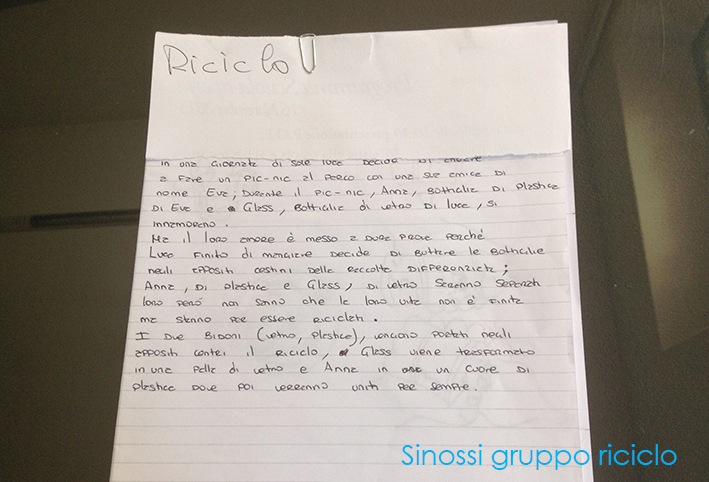 Riciclo
in una giornata di sole luce decide di andare
a fare un pic-nic al parco con una sua amica di
nome Eva; Durante il pic-nic, Anna, bottiglia di plastica
di Eva e Glass, bottiglia di vetro di luce, si
innamorano.
Ma il loro amore è messo a dura prova perché
Luce finito di mangiare decide di buttare le bottiglie
negli appositi cestini della raccolta differenziata;
Anna, di plastica e Glass, di vetro saranno separati
loro però non sanno che la loro vita non è finita
ma stanno per essere riciclati.
I due bidoni (vetro, plastica), vengono portati negli
appositi centri il riciclo, Glass viene trasformato
in una palla di vetro e Anna in un cuore di
plastica dove poi verranno uniti per sempre.
Sinossi gruppo riciclo